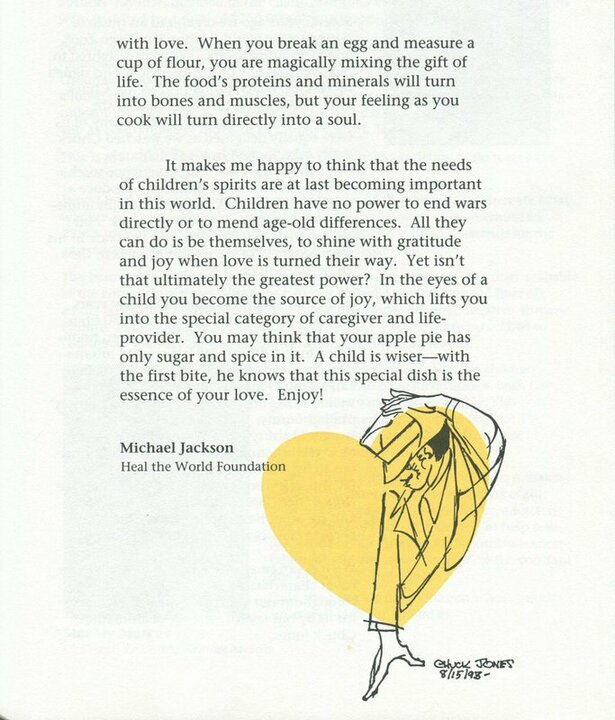 with love. When you break an egg and measure a
cup of flour, you are magically mixing the gift of
life. The food's proteins and minerals will turn
into bones and muscles, but your feeling as you
cook will turn directly into a soul.
It makes me happy to think that the needs
of children's spirits are at last becoming important
in this world. Children have no power to end wars
directly or to mend age-old differences. All they
can do is be themselves, to shine with gratitude
and joy when love is turned their way. Yet isn't
that ultimately the greatest power? In the eyes of a
child you become the source of joy, which lifts you
into the special category of caregiver and life-
provider. You may think that your apple pie has
only sugar and spice in it. A child is wiser—with
the first bite, he knows that this special dish is the
essence of your love. Enjoy!
Michael Jackson
Heal the World Foundation
CHUCK JONES
8/15/93-